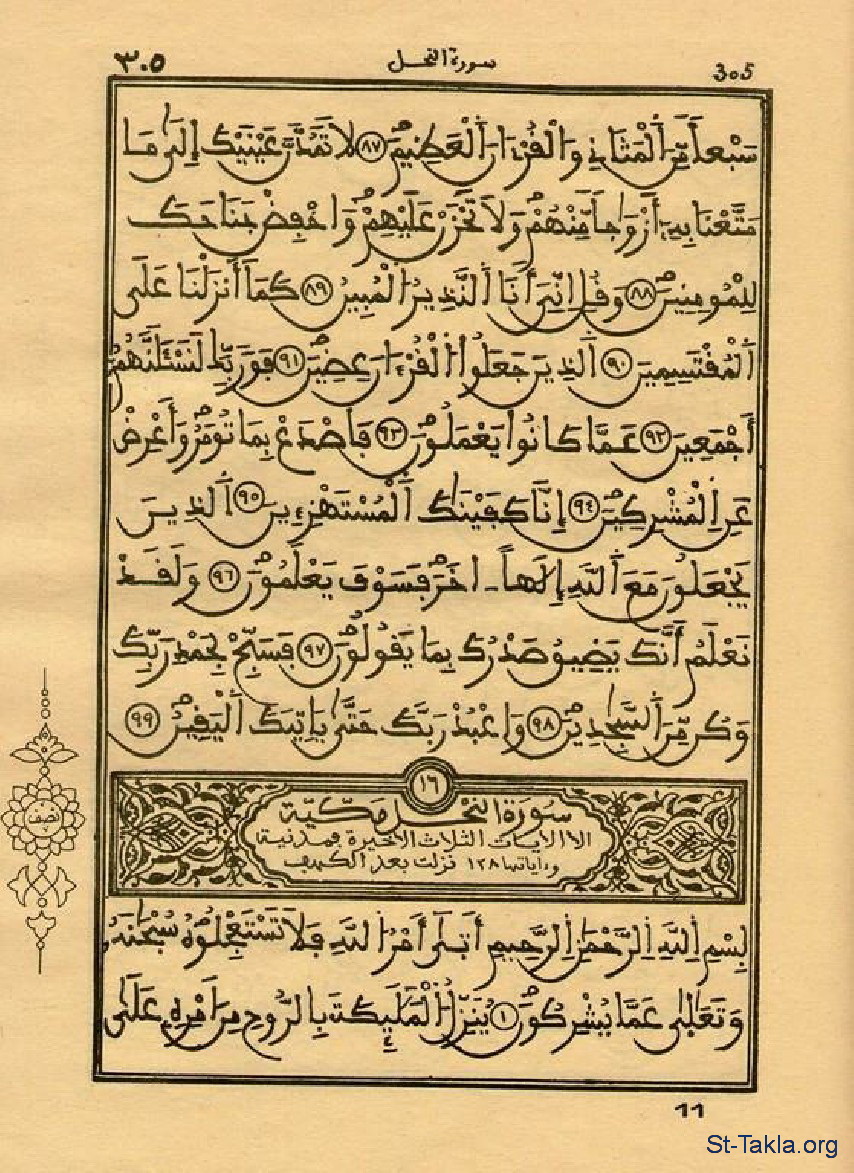 305 سورة النحل ٣٠٥
سَبْعاً مِّنَ اَلْمَثَانِي وَالْقُرْءَانَ اَلْعَظِيمَ ٨٧ لَا تَمُدَّنَّ عَيْنَيْكَ إِلَىٰ مَا
مَتَّعْنَا بِهِۦ أَزْوَاجاً مِّنْهُمْ وَلَا تَحْزَنْ عَلَيْهِمْ وَاخْفِضْ جَنَاحَكَ
لِلْمُومِنِينَ ٨٨ وَقُلِ اِنِّيَ أَنَا اَلنَّذِيرُ اَلْمُبِينُ ٨٩ كَمَا أَنزَلْنَا عَلَى
اَلْمُقْتَسِمِينَ ٩٠ اَلذِينَ جَعَلُوا اُلْقُرْءَانَ عِضِينَ ٩١ فَوَرَبِّكَ لَنَسْـَٔلَنَّهُمُ
أَجْمَعِينَ ٩٢ عَمَّا كَانُوا يَعْمَلُونَ ٩٣ فَاصْدَعْ بِمَا تُومَرُ وَأَعْرِضْ
عَنِ اِلْمُشْرِكِينَ ٩٤ إِنَّا كَفَيْنَٰكَ اَلْمُسْتَهْزِءِينَ ٩٥ اَلذِينَ
يَجْعَلُونَ مَعَ اَللَّهِ إِلَٰهاً ـاخَرَ فَسَوْفَ يَعْلَمُونَ ٩٦ وَلَقَدْ
نَعْلَمُ أَنَّكَ يَضِيقُ صَدْرُكَ بِمَا يَقُولُونَ ٩٧ فَسَبِّحْ بِحَمْدِ رَبِّكَ
وَكُن مِّنَ اَلسَّٰجِدِينَ ٩٨ وَاعْبُدْ رَبَّكَ حَتَّىٰ يَاتِيَكَ اَلْيَقِينُ ٩٩
١٦
سورة النحل مكية
الا الايات الثلاث الاخيرة فمدنية
وءاياتها ١٢٨ نزلت بعد الكهف
نصف
بِسْمِ اِللَّهِ اِلرَّحْمَٰنِ اِلرَّحِيمِ أَتَىٰ أَمْرُ اُللَّهِ فَلَا تَسْتَعْجِلُوهُ سُبْحَٰنَهُۥ
وَتَعَٰلَىٰ عَمَّا يُشْرِكُونَ ١ يُنَزِّلُ اُلْمَلَٰئِكَةَ بِالرُّوحِ مِنَ اَمْرِهِۦ عَلَىٰ
11
St-Takla.org